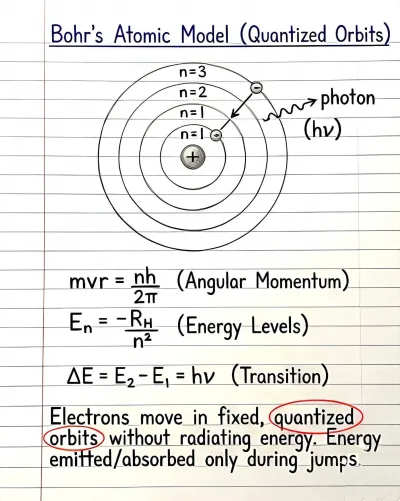 Bohr's Atomic Model (Quantized Orbits)
n=3
n=2
n=1
n=1
−
−
+
photon
(hν)
mvr = nh/2π (Angular Momentum)
Eₙ = −R_H/n² (Energy Levels)
ΔE = E₂ − E₁ = hν (Transition)
Electrons move in fixed, quantized
orbits without radiating energy. Energy
emitted/absorbed only during jumps.